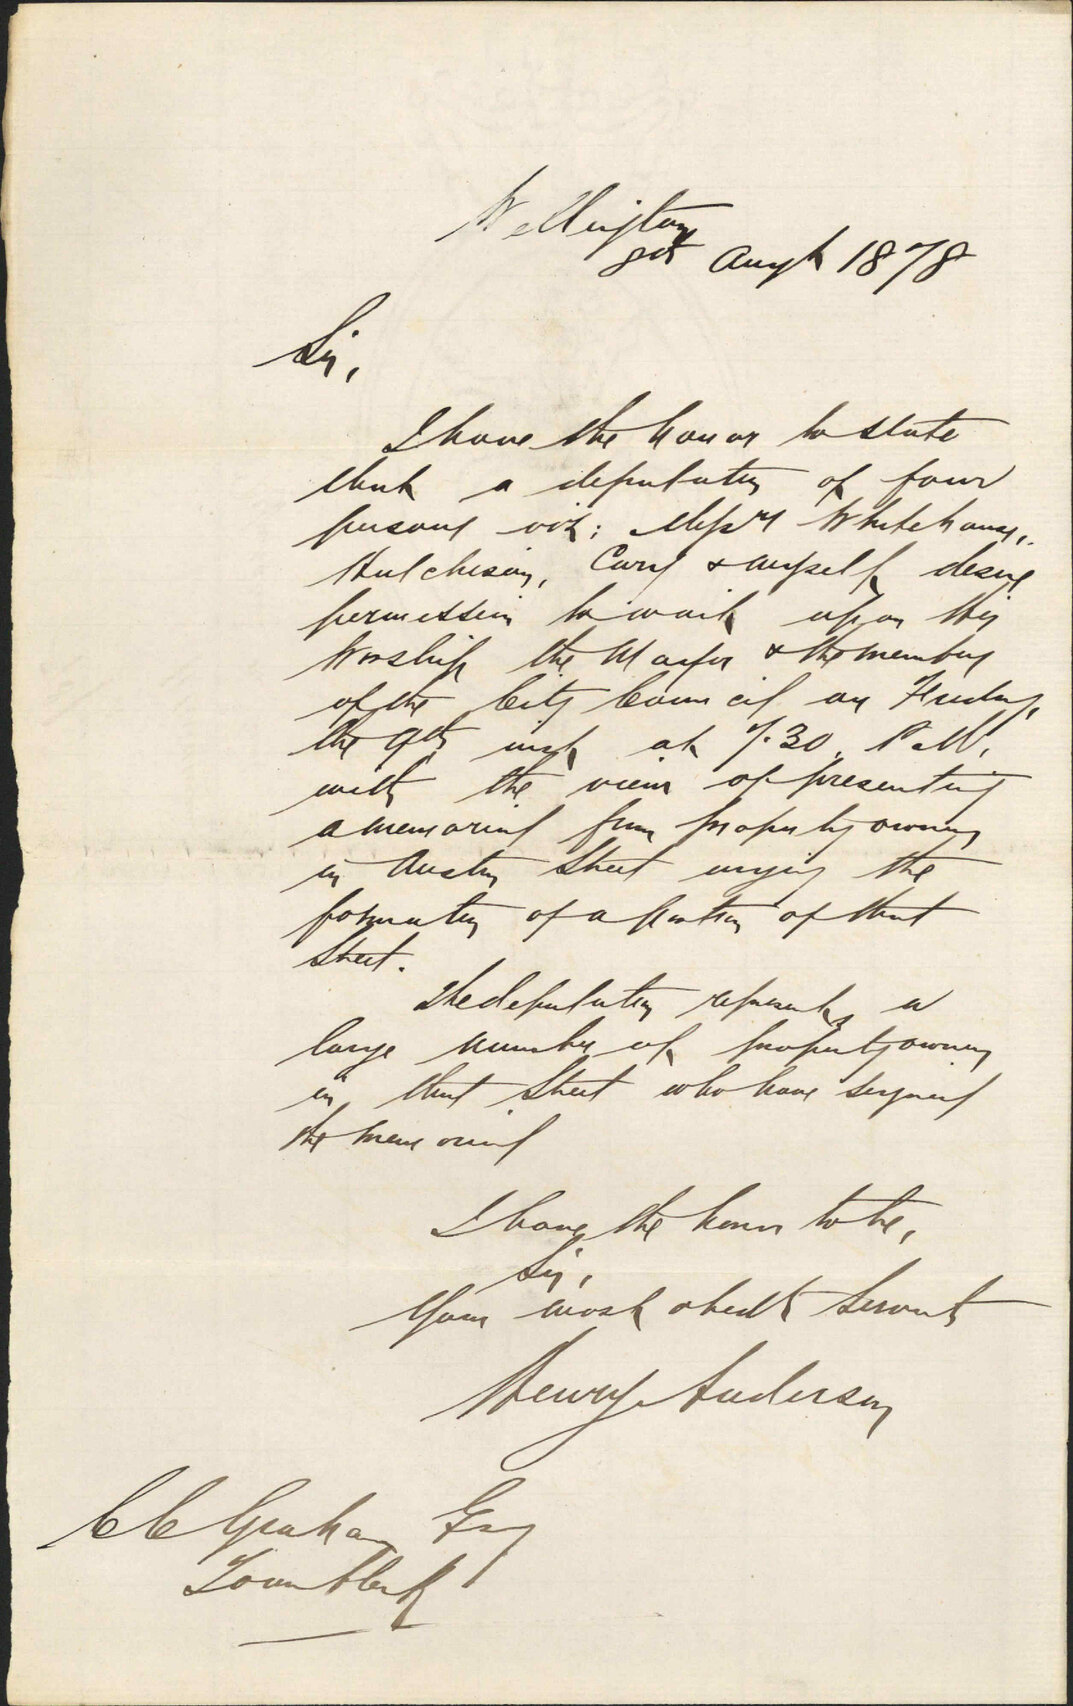 Wellington
8th Augt 1878
Sir,
I have the honor to state
that a deputation of four
persons viz: Messrs Whitehouse,
Hutchison, & myself desire
permission to wait upon His
Worship the Mayor & the members
of the City Council on Friday,
the 9th inst at 7.30, P.M.,
with the view of presenting
a memorial from property owners
in Austin Street urging the
formation of a portion of that
Street.
The deputation represents a
large number of property owners
in that Street who have signed
the memorial
I have the honor to be,
Sir,
Your most obedt Servant
Henry Anderson
C C Graham Esq
Town Clerk